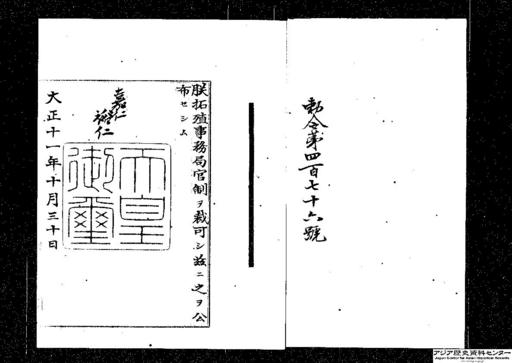 勅令第四百七十六號
朕拓殖事務局官制ヲ裁可シ茲ニ之ヲ公
布セシム
嘉仁
裕仁
天皇
御璽
大正十一年十月三十日
アジア歴史資料センター
Japan Center for Asian Historical Records